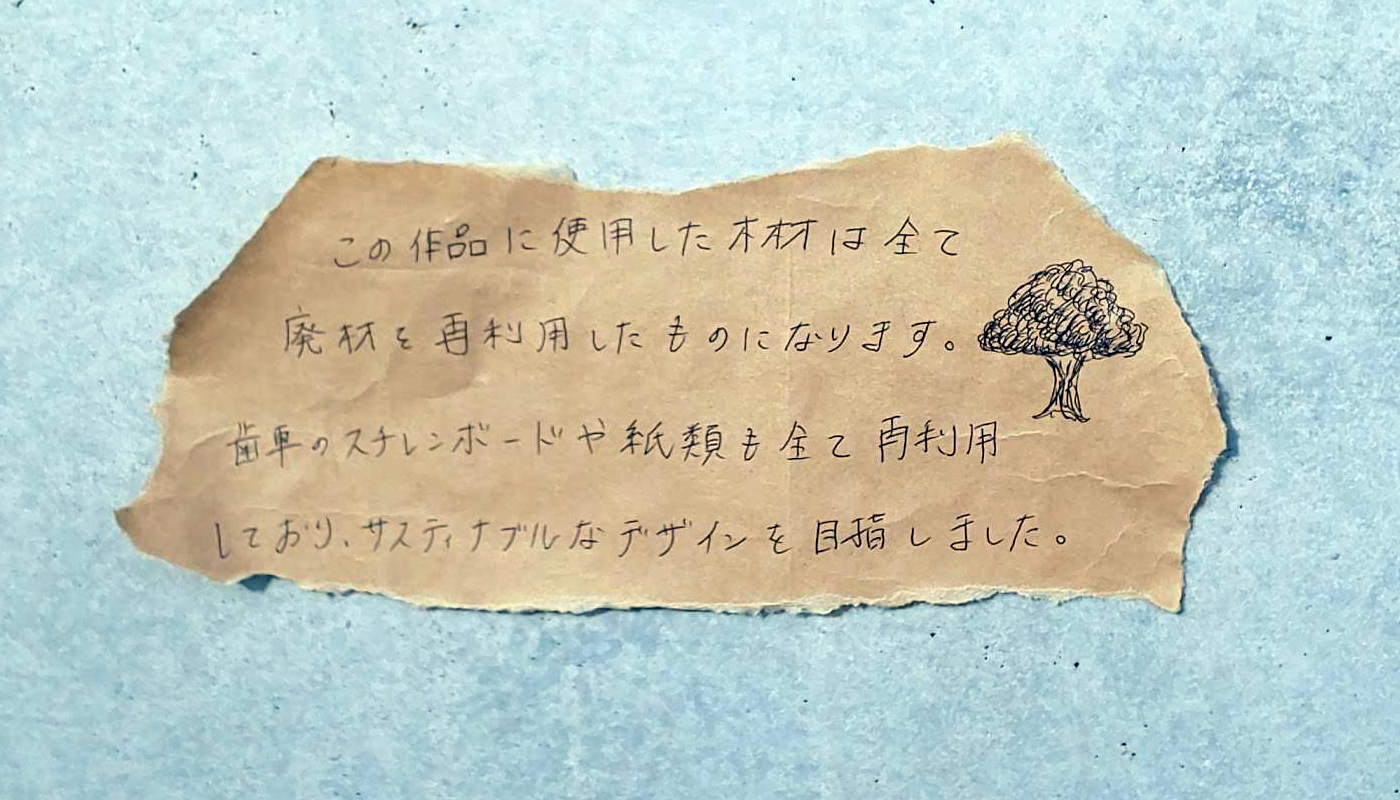 この作品に使用した木材は全て
廃材を再利用したものになります。
歯車のスチレンボードや紙類も全て再利用
しており、サスティナブルなデザインを目指しました。